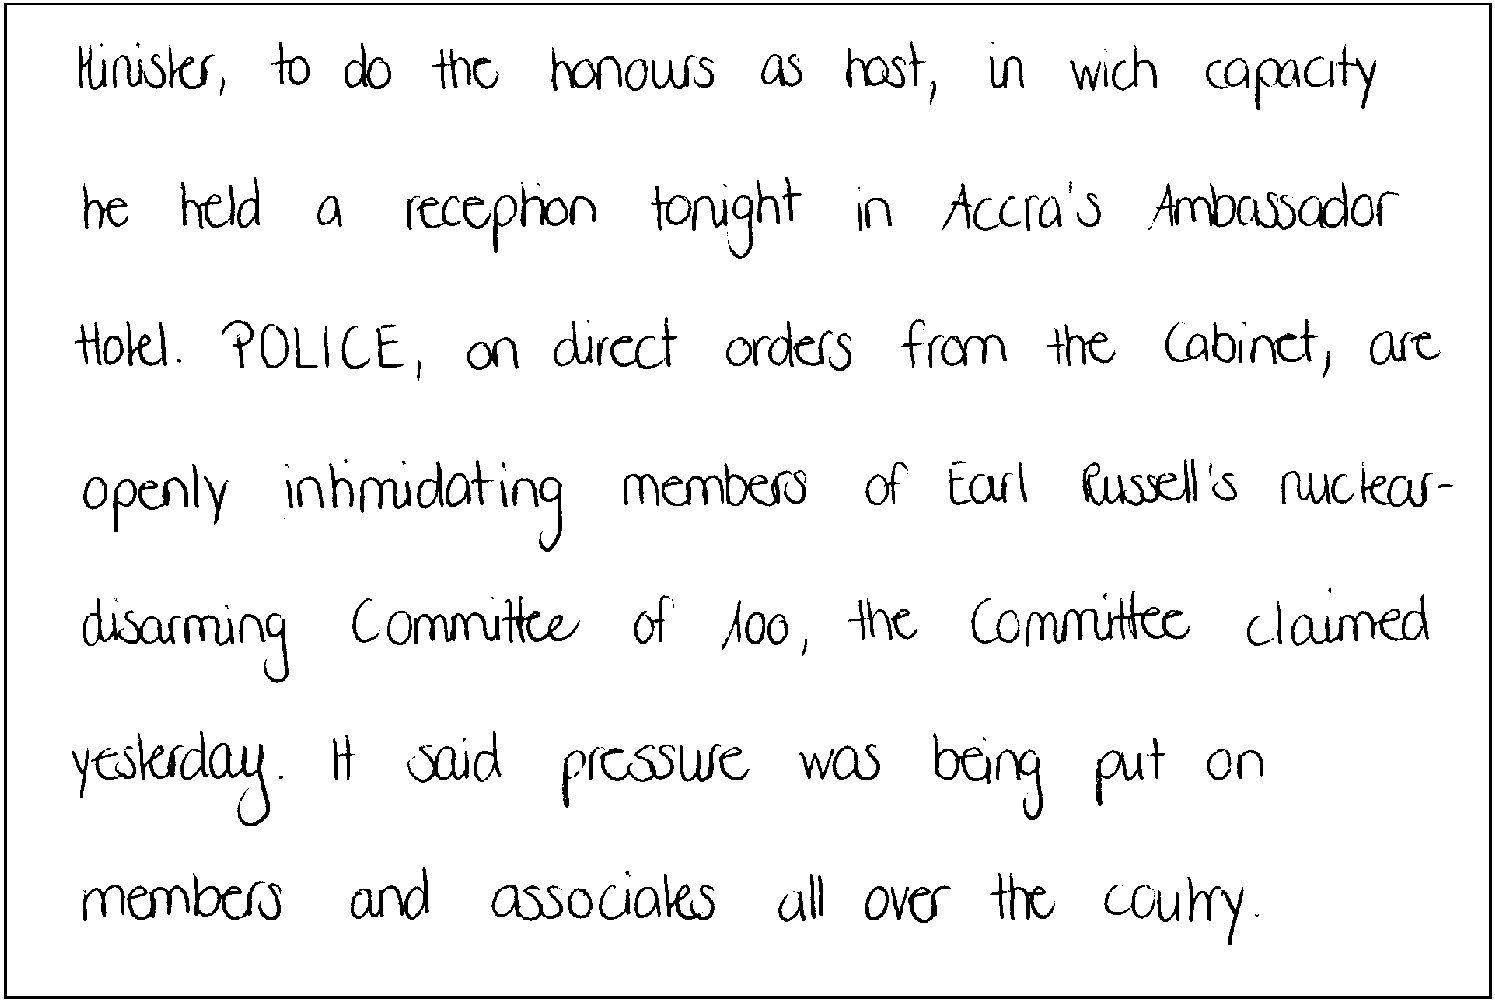 Minister, to do the honours as host, in wich capacity
he held a reception tonight in Accra's Ambassador
Hotel. POLICE, on direct orders from the Cabinet, are
openly intimidating members of Earl Russell's nuclear-
disarming Committee of 100, the Committee claimed
yesterday. It said pressure was being put on
members and associates all over the coutry.